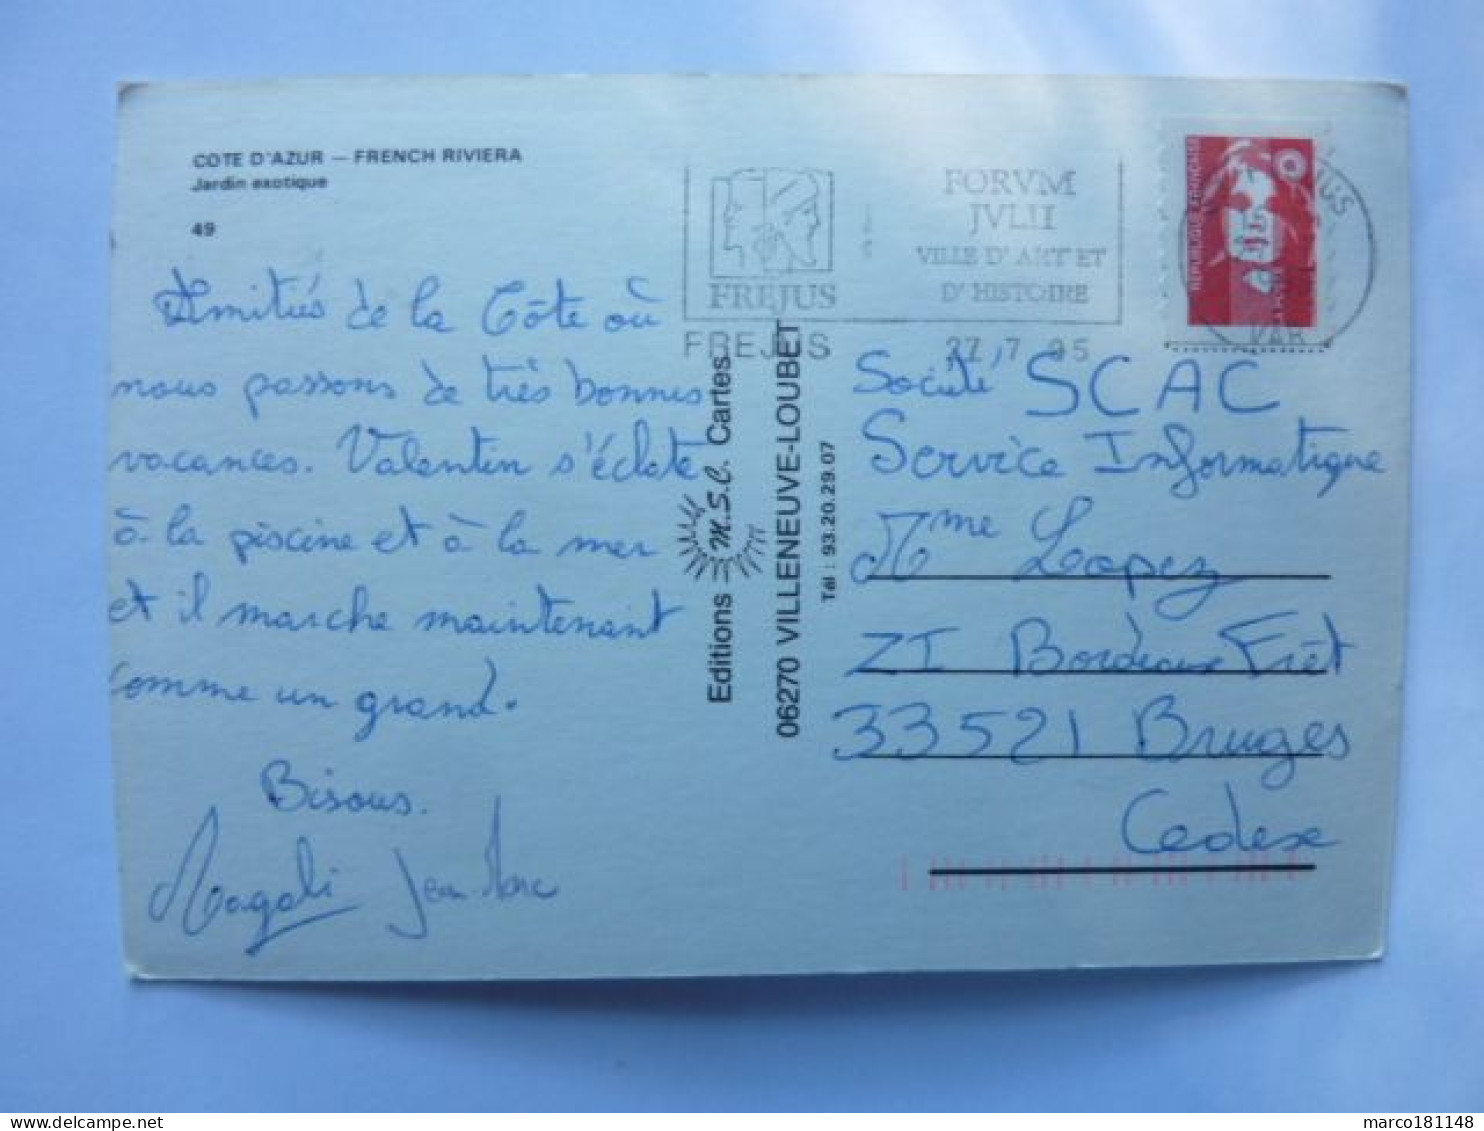 COTE D'AZUR — FRENCH RIVIERA
Jardin exotique
49
Amitiés de la Côte où
nous passons de très bonnes
vacances. Valentin s'éclate
à la piscine et à la mer
et il marche maintenant
comme un grand.
Bisous.
Magali Jean Marc
Editions M.S.C. Cartes
06270 VILLENEUVE-LOUBET
Tél : 93.20.29.07
FREJUS
FORVM
JVLII
VILLE D'ART ET
D'HISTOIRE
FREJUS 27 7 95
REPUBLIQUE FRANÇAISE
VAR
Société SCAC
Service Informatique
Mme Lopez
ZI Bordeaux Frêt
33521 Bruges
Cedex
marco181148